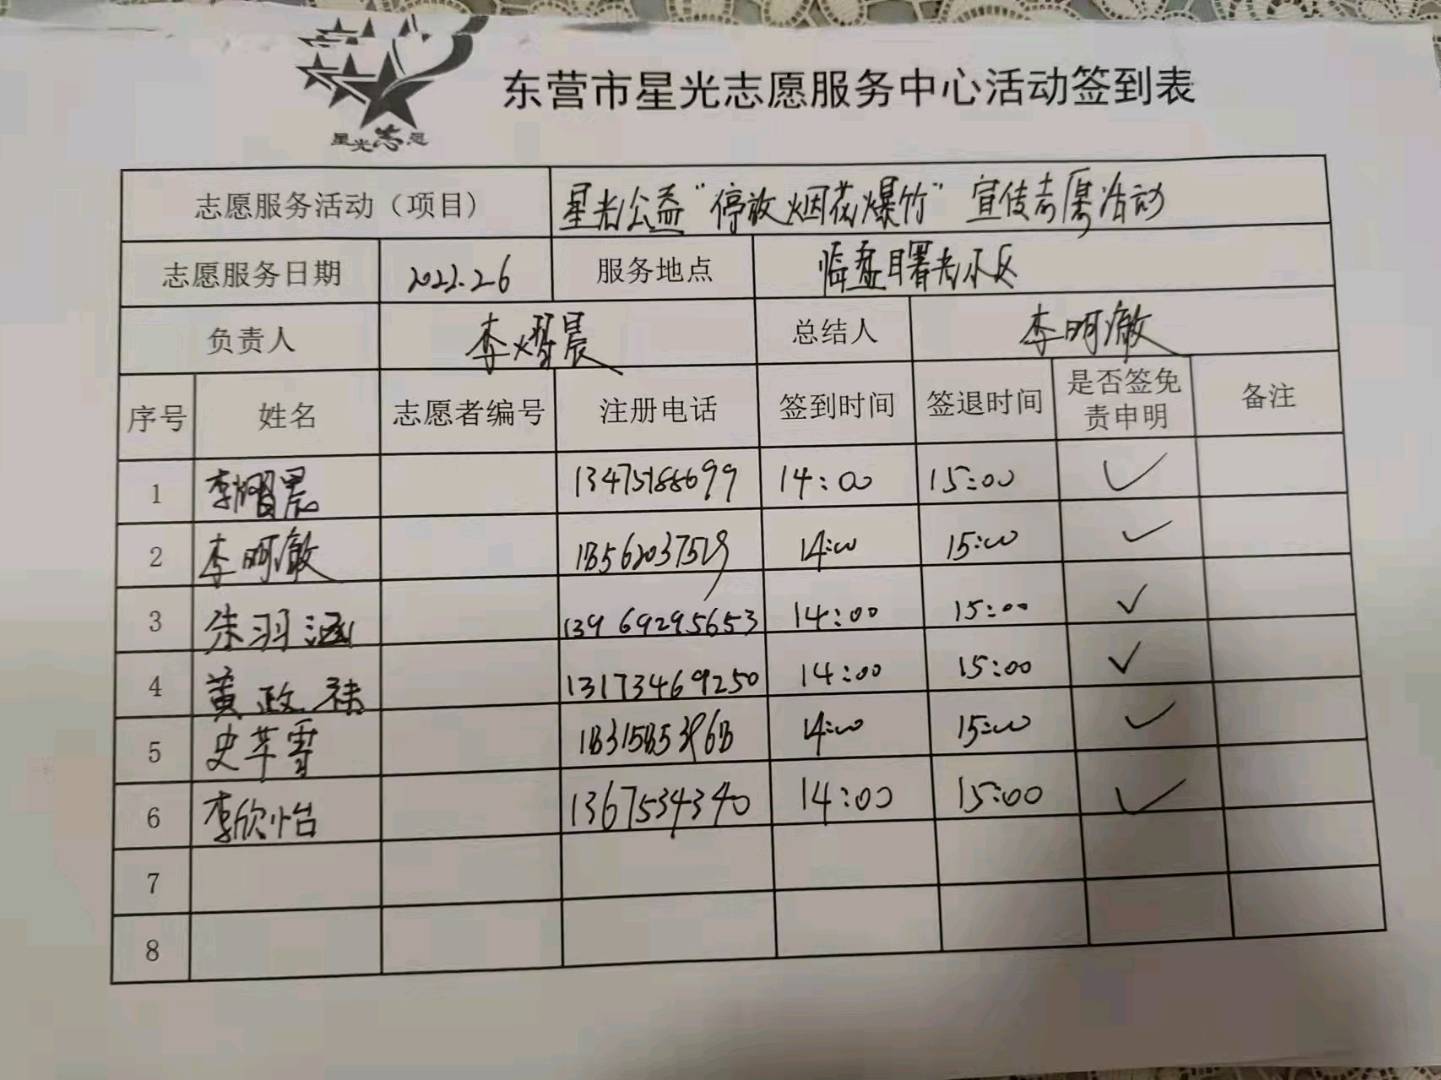 星光志愿
东营市星光志愿服务中心活动签到表
志愿服务活动（项目） 星光公益“停放烟花爆竹”宣传志愿活动
志愿服务日期 2022.2.6 服务地点 临盘曙光小区
负责人 李熠晨 总结人 李明澈
序号 姓名 志愿者编号 注册电话 签到时间 签退时间 是否签免责申明 备注
1 李熠晨 14:00 15:00 ✓
2 李明澈 14:00 15:00 ✓
3 朱羽涵 13969295653 14:00 15:00 ✓
4 黄政祎 13173469250 14:00 15:00 ✓
5 史苹雪 14:00 15:00 ✓
6 李欣怡 1367534340 14:00 15:00 ✓
7
8